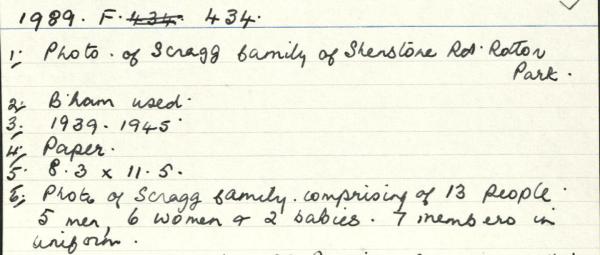 1989. F. 434. 434.
1; Photo. of Scragg family of Shenstone Rd. Rotton
Park.
2; B'ham used.
3; 1939. 1945
4; Paper.
5; 8.3 x 11.5.
6; Photo of Scragg family. comprising of 13 people.
5 men, 6 women & 2 babies. 7 members in
uniform.